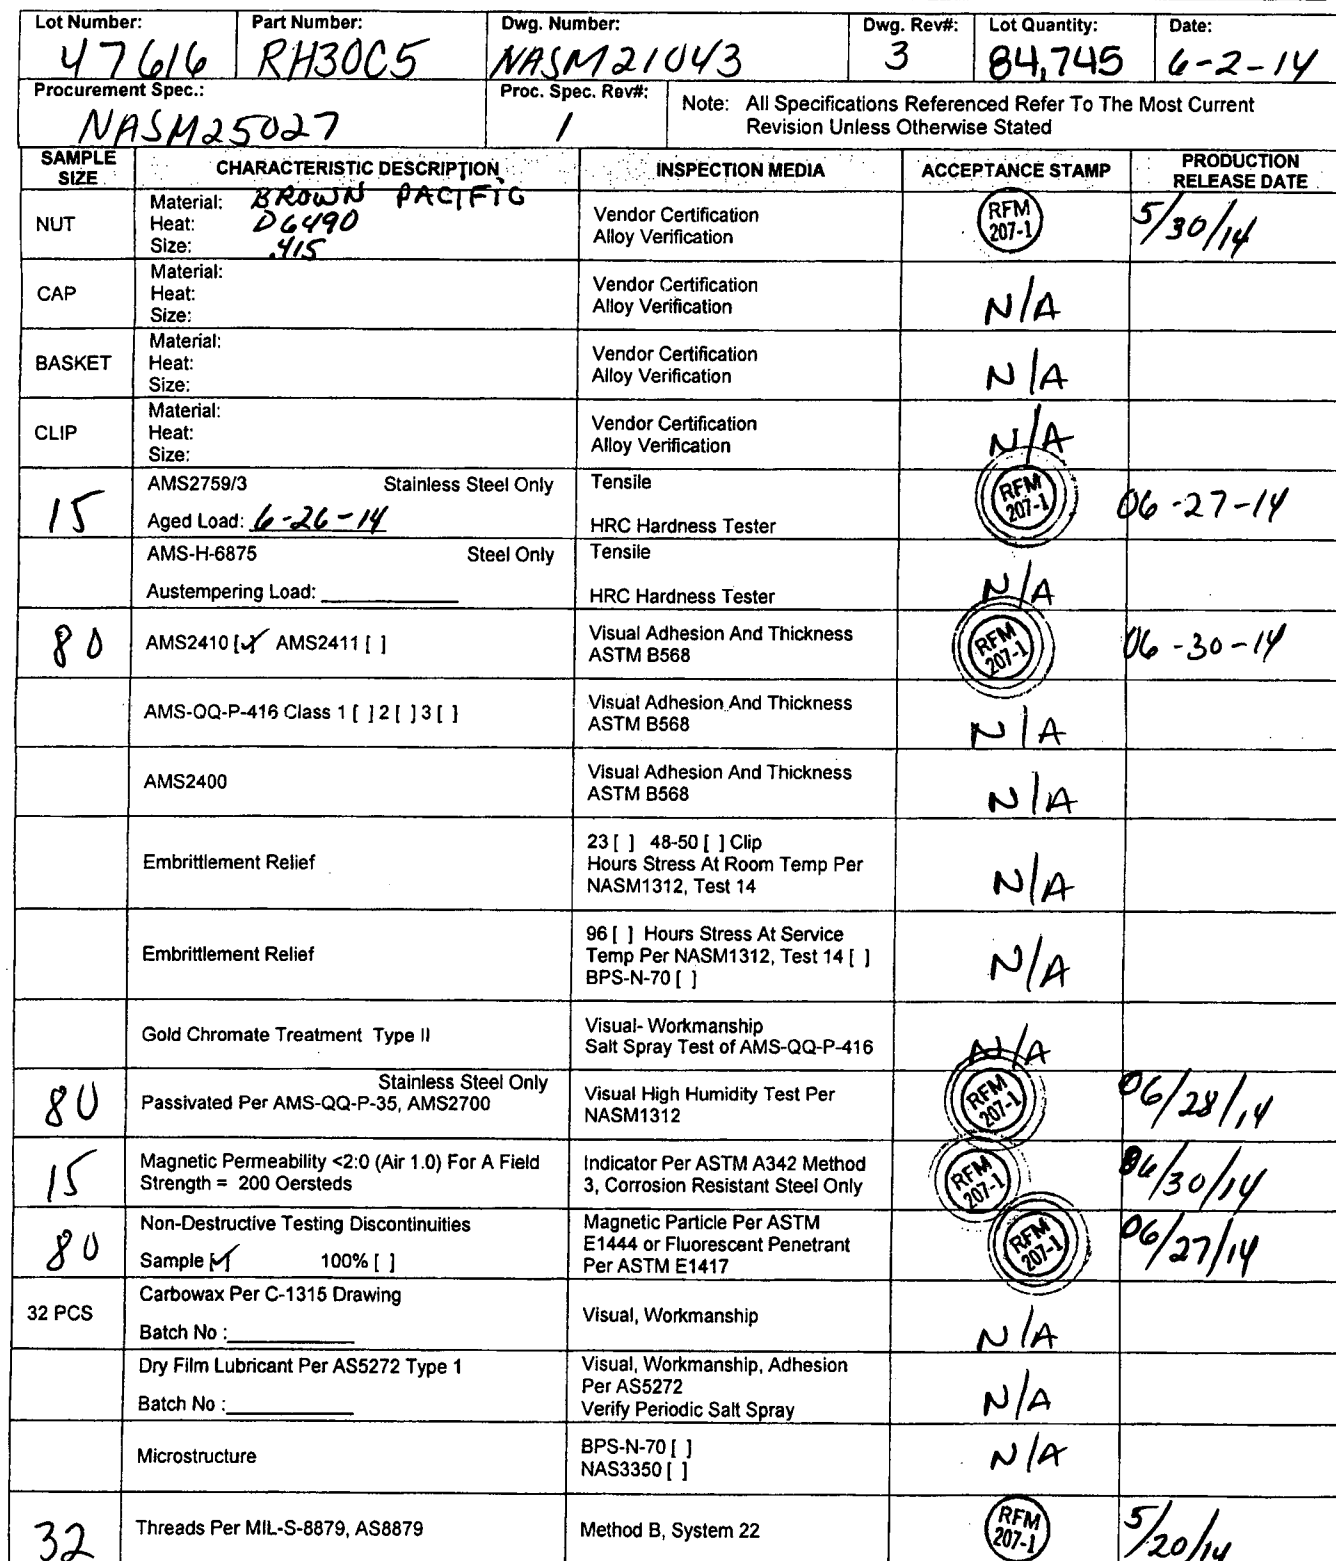 Lot Number: Part Number: Dwg. Number: Dwg. Rev#: Lot Quantity: Date:
47616 RH30C5 NASM21043 3 84,745 6-2-14
Procurement Spec.: Proc. Spec. Rev#: Note: All Specifications Referenced Refer To The Most Current
NASM25027 1 Revision Unless Otherwise Stated
SAMPLE SIZE CHARACTERISTIC DESCRIPTION INSPECTION MEDIA ACCEPTANCE STAMP PRODUCTION RELEASE DATE
NUT
Material: BROWN PACIFIC
Heat: D6490
Size: .415
Vendor Certification
Alloy Verification
RFM
207-1
5/30/14
CAP
Material:
Heat:
Size:
Vendor Certification
Alloy Verification
N/A
BASKET
Material:
Heat:
Size:
Vendor Certification
Alloy Verification
N/A
CLIP
Material:
Heat:
Size:
Vendor Certification
Alloy Verification
N/A
15
AMS2759/3 Stainless Steel Only
Aged Load: 6-26-14
Tensile
HRC Hardness Tester
RFM
207-1
06-27-14
AMS-H-6875 Steel Only
Austempering Load:
Tensile
HRC Hardness Tester
N/A
80
AMS2410 [✓] AMS2411 [ ]
Visual Adhesion And Thickness
ASTM B568
RFM
207-1
06-30-14
AMS-QQ-P-416 Class 1 [ ] 2 [ ] 3 [ ]
Visual Adhesion And Thickness
ASTM B568
N/A
AMS2400
Visual Adhesion And Thickness
ASTM B568
N/A
Embrittlement Relief
23 [ ] 48-50 [ ] Clip
Hours Stress At Room Temp Per
NASM1312, Test 14
N/A
Embrittlement Relief
96 [ ] Hours Stress At Service
Temp Per NASM1312, Test 14 [ ]
BPS-N-70 [ ]
N/A
Gold Chromate Treatment Type II
Visual- Workmanship
Salt Spray Test of AMS-QQ-P-416
N/A
80
Stainless Steel Only
Passivated Per AMS-QQ-P-35, AMS2700
Visual High Humidity Test Per
NASM1312
RFM
207-1
06/28/14
15
Magnetic Permeability <2:0 (Air 1.0) For A Field
Strength = 200 Oersteds
Indicator Per ASTM A342 Method
3, Corrosion Resistant Steel Only
RFM
207-1
06/30/14
80
Non-Destructive Testing Discontinuities
Sample [✓] 100% [ ]
Magnetic Particle Per ASTM
E1444 or Fluorescent Penetrant
Per ASTM E1417
RFM
207-1
06/27/14
32 PCS
Carbowax Per C-1315 Drawing
Batch No :
Visual, Workmanship
N/A
Dry Film Lubricant Per AS5272 Type 1
Batch No :
Visual, Workmanship, Adhesion
Per AS5272
Verify Periodic Salt Spray
N/A
Microstructure
BPS-N-70 [ ]
NAS3350 [ ]
N/A
32
Threads Per MIL-S-8879, AS8879
Method B, System 22
RFM
207-1
5/20/14